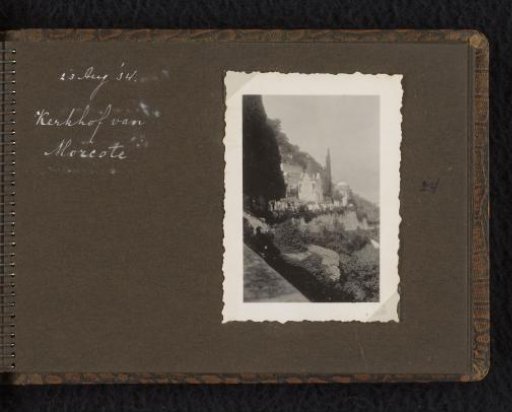 23 Aug '34.
Kerkhof van
Morcote
24